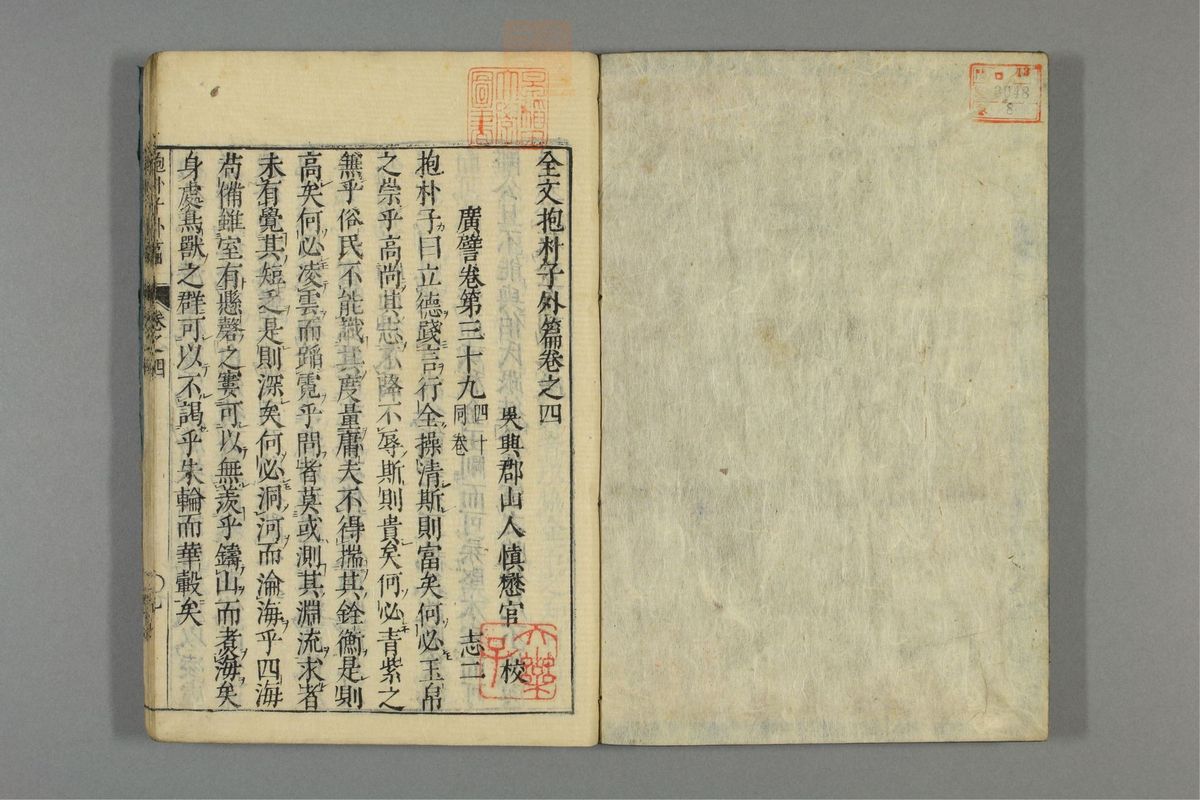 13
3048
8
全文抱朴子外篇卷之四
吳興郡山人慎懋官校
廣譬卷第三十九 四十同卷 志二
抱朴子曰立德踐言行全操清斯則富矣何必玉帛
之崇乎高尚其志不降不辱斯則貴矣何必青紫之
無乎俗民不能識其度量庸夫不得揣其銓衡是則
高矣何必凌雲而蹈霓乎問者莫或測其淵流求者
未有覺其短乏是則深矣何必洞河而淪海乎四海
苟備雖室有懸磬之窶可以無羨乎鑄山而煮海矣
身處鳥獸之群可以不謁乎朱輪而華轂矣
抱朴子外篇 卷之四